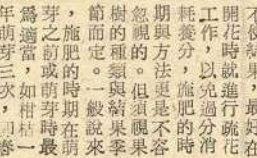 不使結果，最好在
開花時就進行疏花
工作，以免過分消
耗養分，施肥的時
期與方法更是不容
忽視的。但須視果
樹的種類與結果季
節而定。一般說來
，施肥的時期在萌
芽之前或萌芽時最
為適當，如柑桔一
年萌芽三次，即春